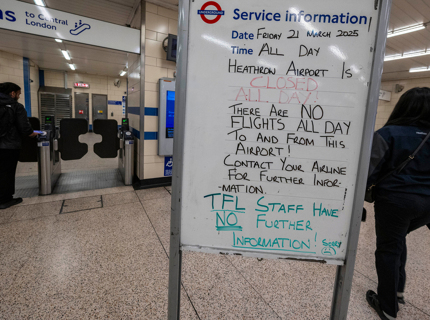 to Central
London
UNDERGROUND
Service information
Date FRIDAY 21 MARCH 2025
Time ALL DAY
HEATHROW AIRPORT IS
CLOSED
ALL DAY
THERE ARE NO
FLIGHTS ALL DAY
TO AND FROM THIS
AIRPORT!
CONTACT YOUR AIRLINE
FOR FURTHER INFOR-
-MATION.
TFL STAFF HAVE
NO FURTHER
INFORMATION!